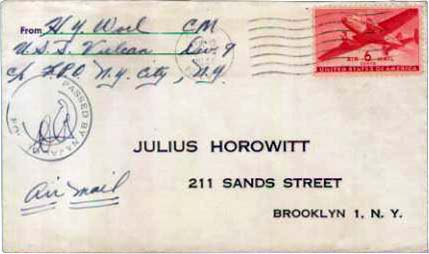 From H. Y. Worl CM
U.S.S. Vulcan Div. 9
c/o F.P.O. N.Y. City, N.Y.
AIR 6 MAIL
CENTS
UNITED STATES OF AMERICA
PASSED BY NAVAL
JULIUS HOROWITT
211 SANDS STREET
BROOKLYN 1, N. Y.
Air mail